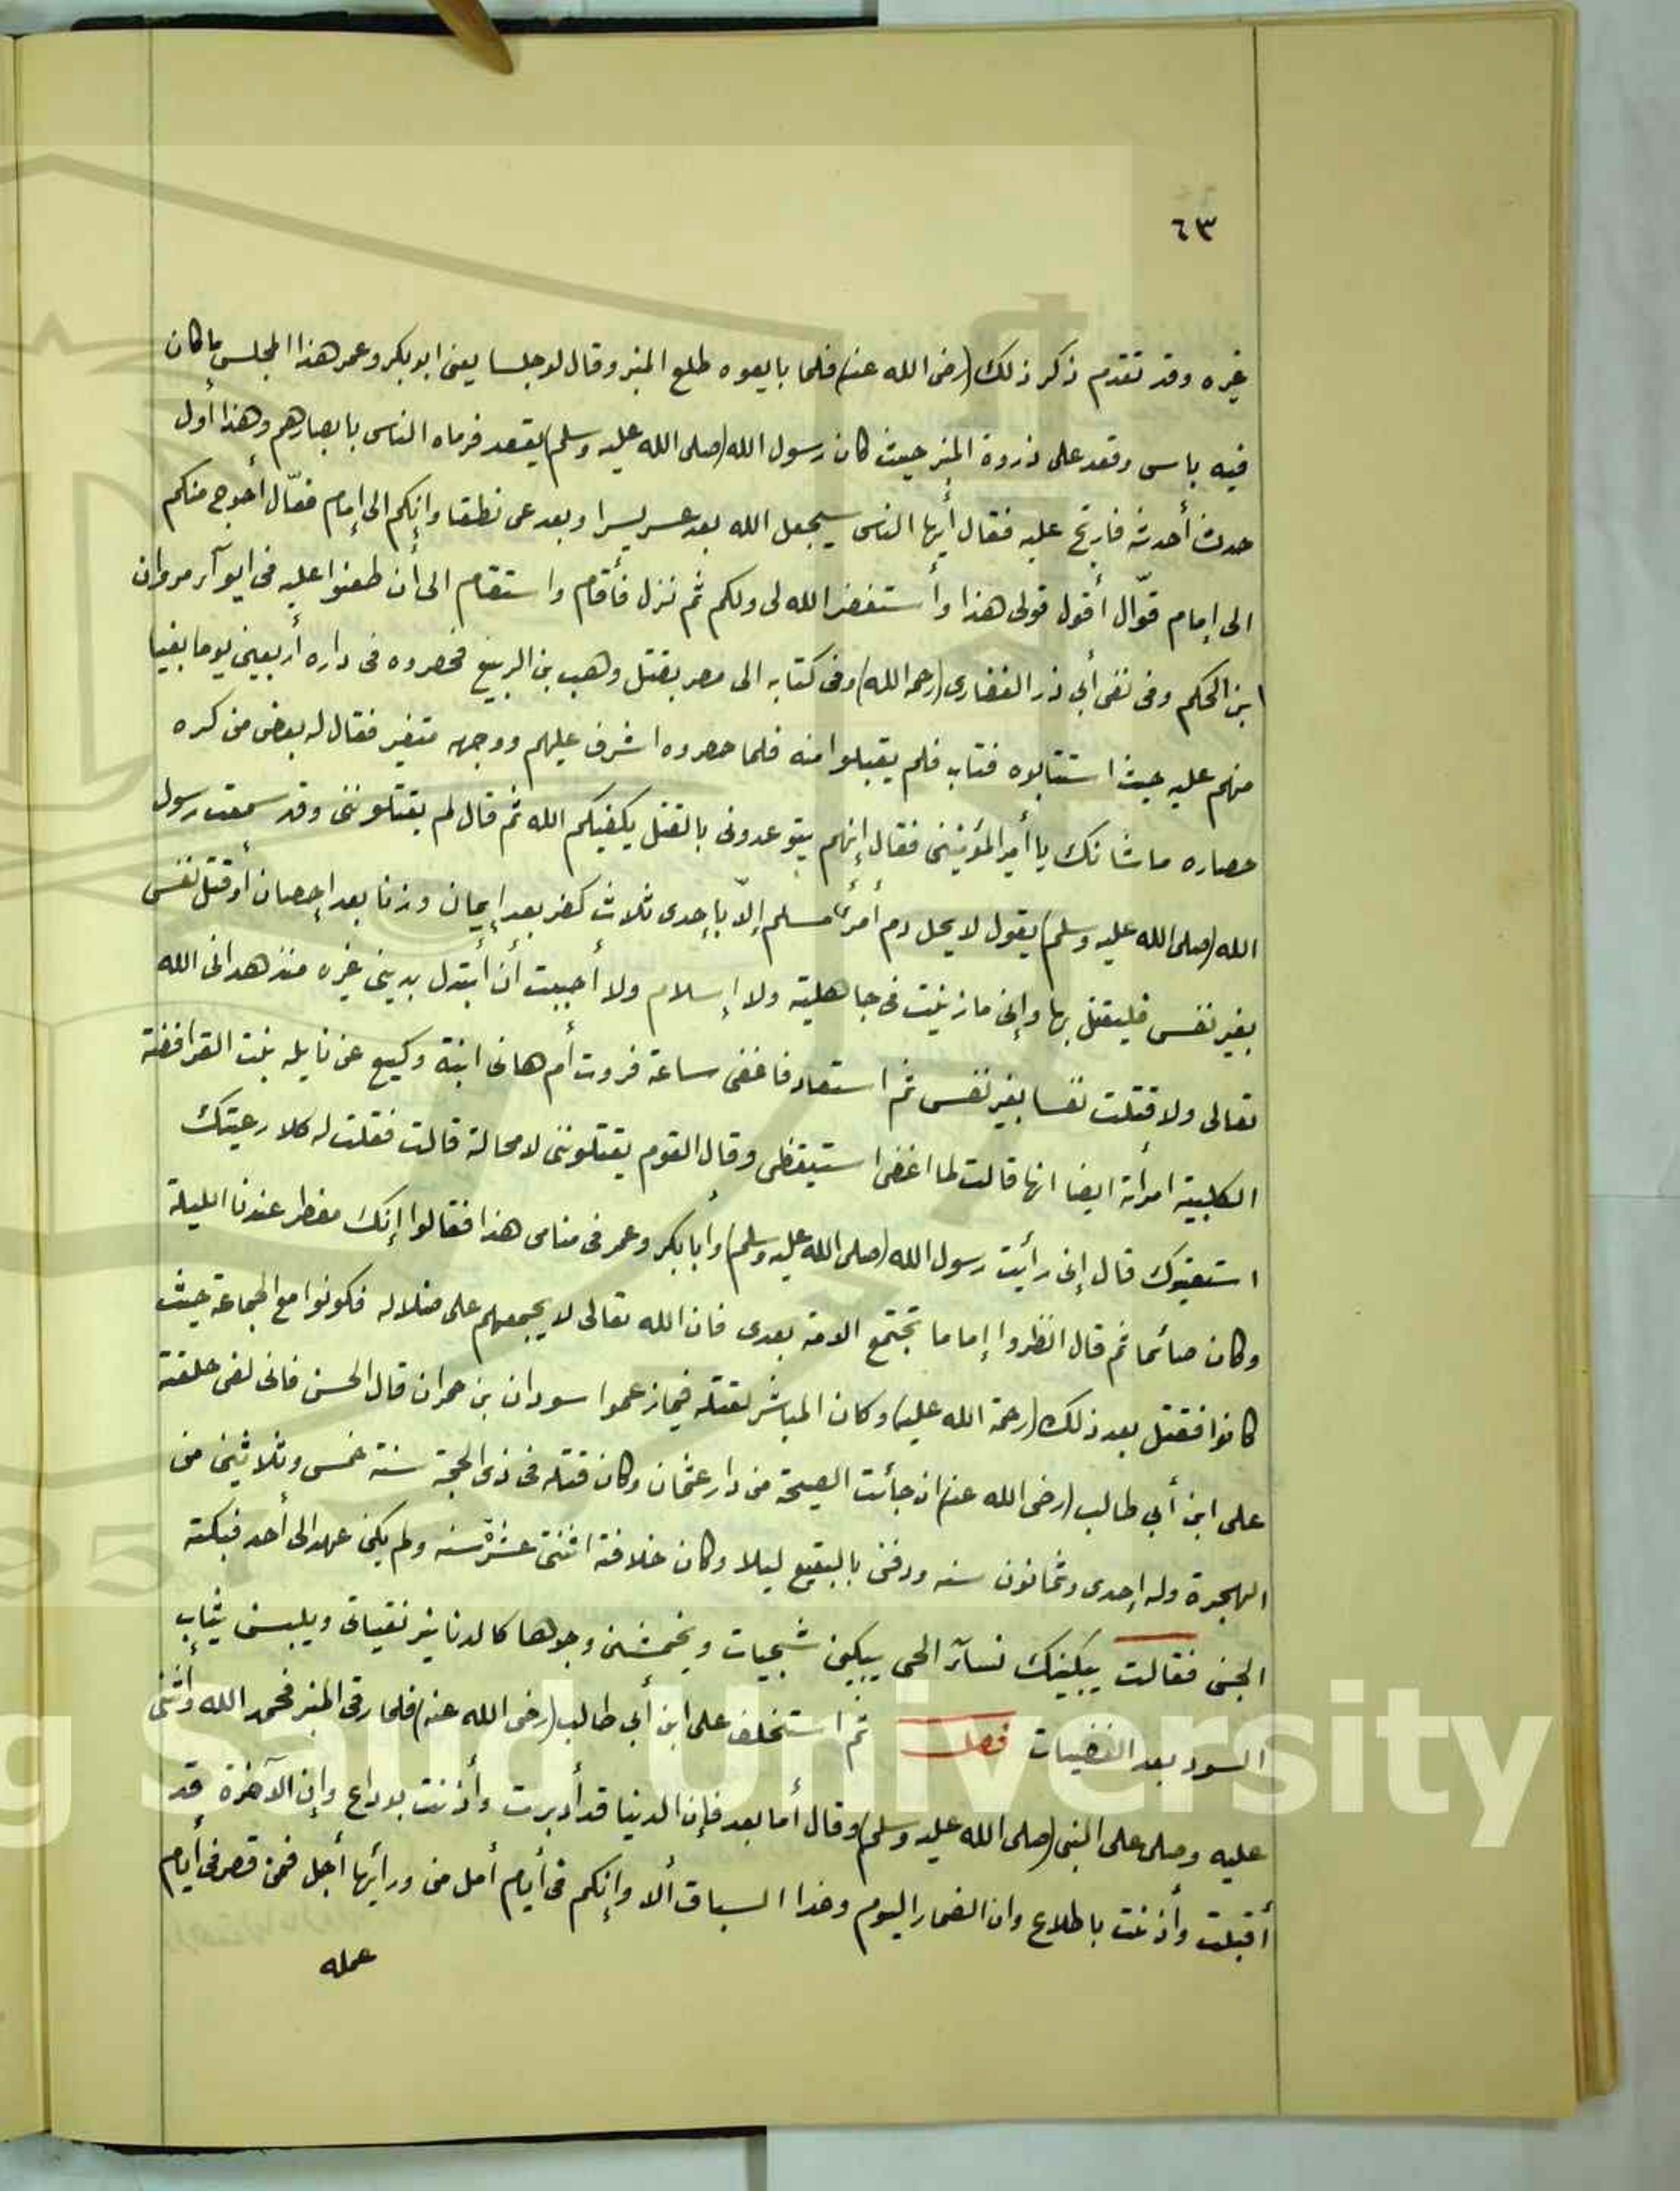 ٦٣
غيره وقد تقدم ذكر ذلك (رضى الله عنه) فلما بايعوه طلع المنبر وقال لو جلسا يعنى ابو بكر وعمر هذا المجلس ما كان
فيه باس وقعد على ذروة المنبر حيث كان رسول الله (صلى الله عليه وسلم) يقعد فرماه الناس بابصارهم وهذا أول
حدث أحدثه فارتج عليه فقال أيها الناس سيجعل الله بعد عسر يسرا وبعد عى نطقا وإنكم الى إمام فعّال أحوج منكم
الى إمام قوّال أقول قولى هذا وأستغفر الله لى ولكم ثم نزل فأقام واستقام الى أن طعنوا عليه فى ايوآء مروان
ابن الحكم وفى نفى أبي ذر الغفارى (رحمه الله) وفى كتابه الى مصر بقتل وهب بن الربيع فحصروه فى داره أربعين يوما بغيا
منهم عليه حيث استتابوه فتاب فلم يقبلوا منه فلما حصروه اشرف عليهم ووجهه متغير فقال له بعض من كره
حصاره ما شانك يا أمير المؤمنين فقال إنهم يتوعدونى بالقتل يكفيكم الله ثم قال لم يقتلوننى وقد سمعت رسول
الله (صلى الله عليه وسلم) يقول لا يحل دم أمرئ مسلم إلاّ بإحدى ثلاث كفر بعد إيمان وزنا بعد إحصان أو قتل نفس
بغير نفس فليقتل بها وإنى ما زنيت فى جاهلية ولا إسلام ولا أحببت أن أبتدل بدينى غيره منذ هدانى الله
تعالى ولا قتلت نفسا بغير نفس ثم استعاد فاغفى ساعة فروت أم هانى ابنة وكيع عن نايله بنت القرافضة
الكلبية امرأته ايضا انها قالت لما اغفى استيقظى وقال القوم يقتلوننى لا محالة قالت فقلت له كلا رعيتك
استعتبوك قال إنى رأيت رسول الله (صلى الله عليه وسلم) وأبا بكر وعمر فى منامى هذا فقالوا إنك مفطر عندنا الليلة
وكان صائما ثم قال انظروا إماما تجتمع الامة بعدى فان الله تعالى لا يجمعهم على ضلاله فكونوا مع الجماعة حيث
كانوا فقتل بعد ذلك (رحمة الله عليه) وكان المباشر لقتله فيما زعموا سودان بن حمران قال الحسن فانى لفى حلقة
على ابن أبي طالب (رضى الله عنه) ان جائت الصيحة من دار عثمان وكان قتله فى ذى الحجة سنة خمس وثلاثين من
الهجرة وله إحدى وثمانون سنه ودفن بالبقيع ليلا وكان خلافة اثنتى عشرة سنه ولم يكن عهد الى أحد فبكته
الجن فقالت يبكينك نسآء الحى يبكين شجيات ويخمشن وجلاها كالدنانير نقيات ويلبسن ثياب
السود بعد الغضيات فصل ثم استخلف على ابن أبي طالب (رضى الله عنه) فلما رقى المنبر فحمد الله وأثنى
عليه وصلى على النبى (صلى الله عليه وسلم) وقال أما بعد فإن الدنيا قد أدبرت وأذنت بوداع وإن الآخرة قد
أقبلت وأذنت باطلاع وان الضمار اليوم وغدا السباق ألا وإنكم فى أيام أمل من ورأيها أجل فمن قصر فى أيام
عمله
g Saud University